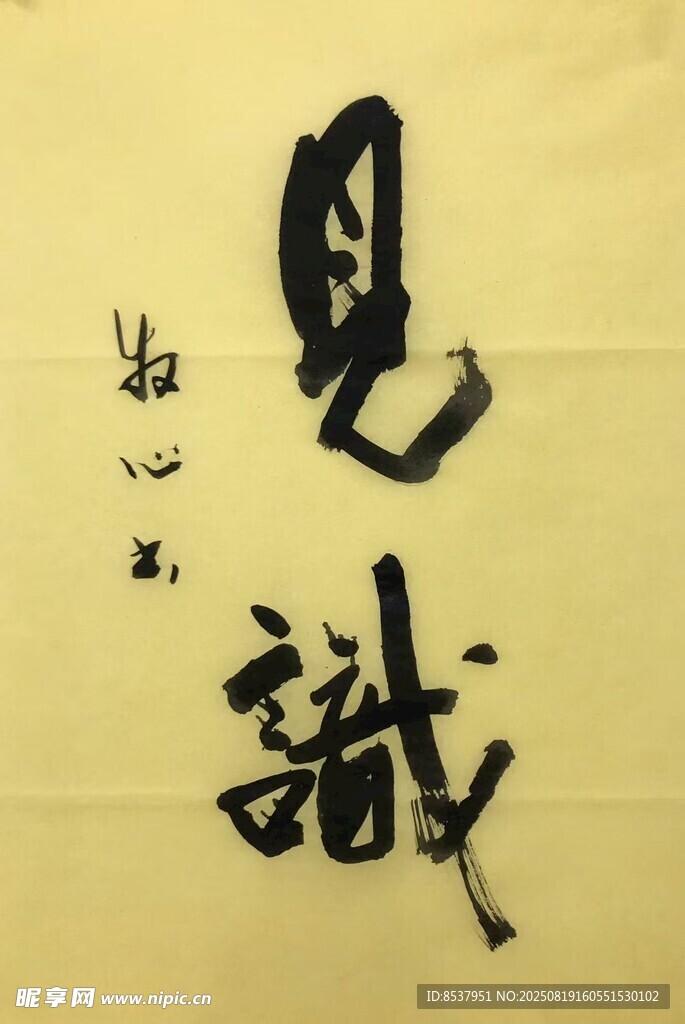 見識
牧心书
昵享网 www.nipic.cn
ID:8537951 NO:20250819160551530102